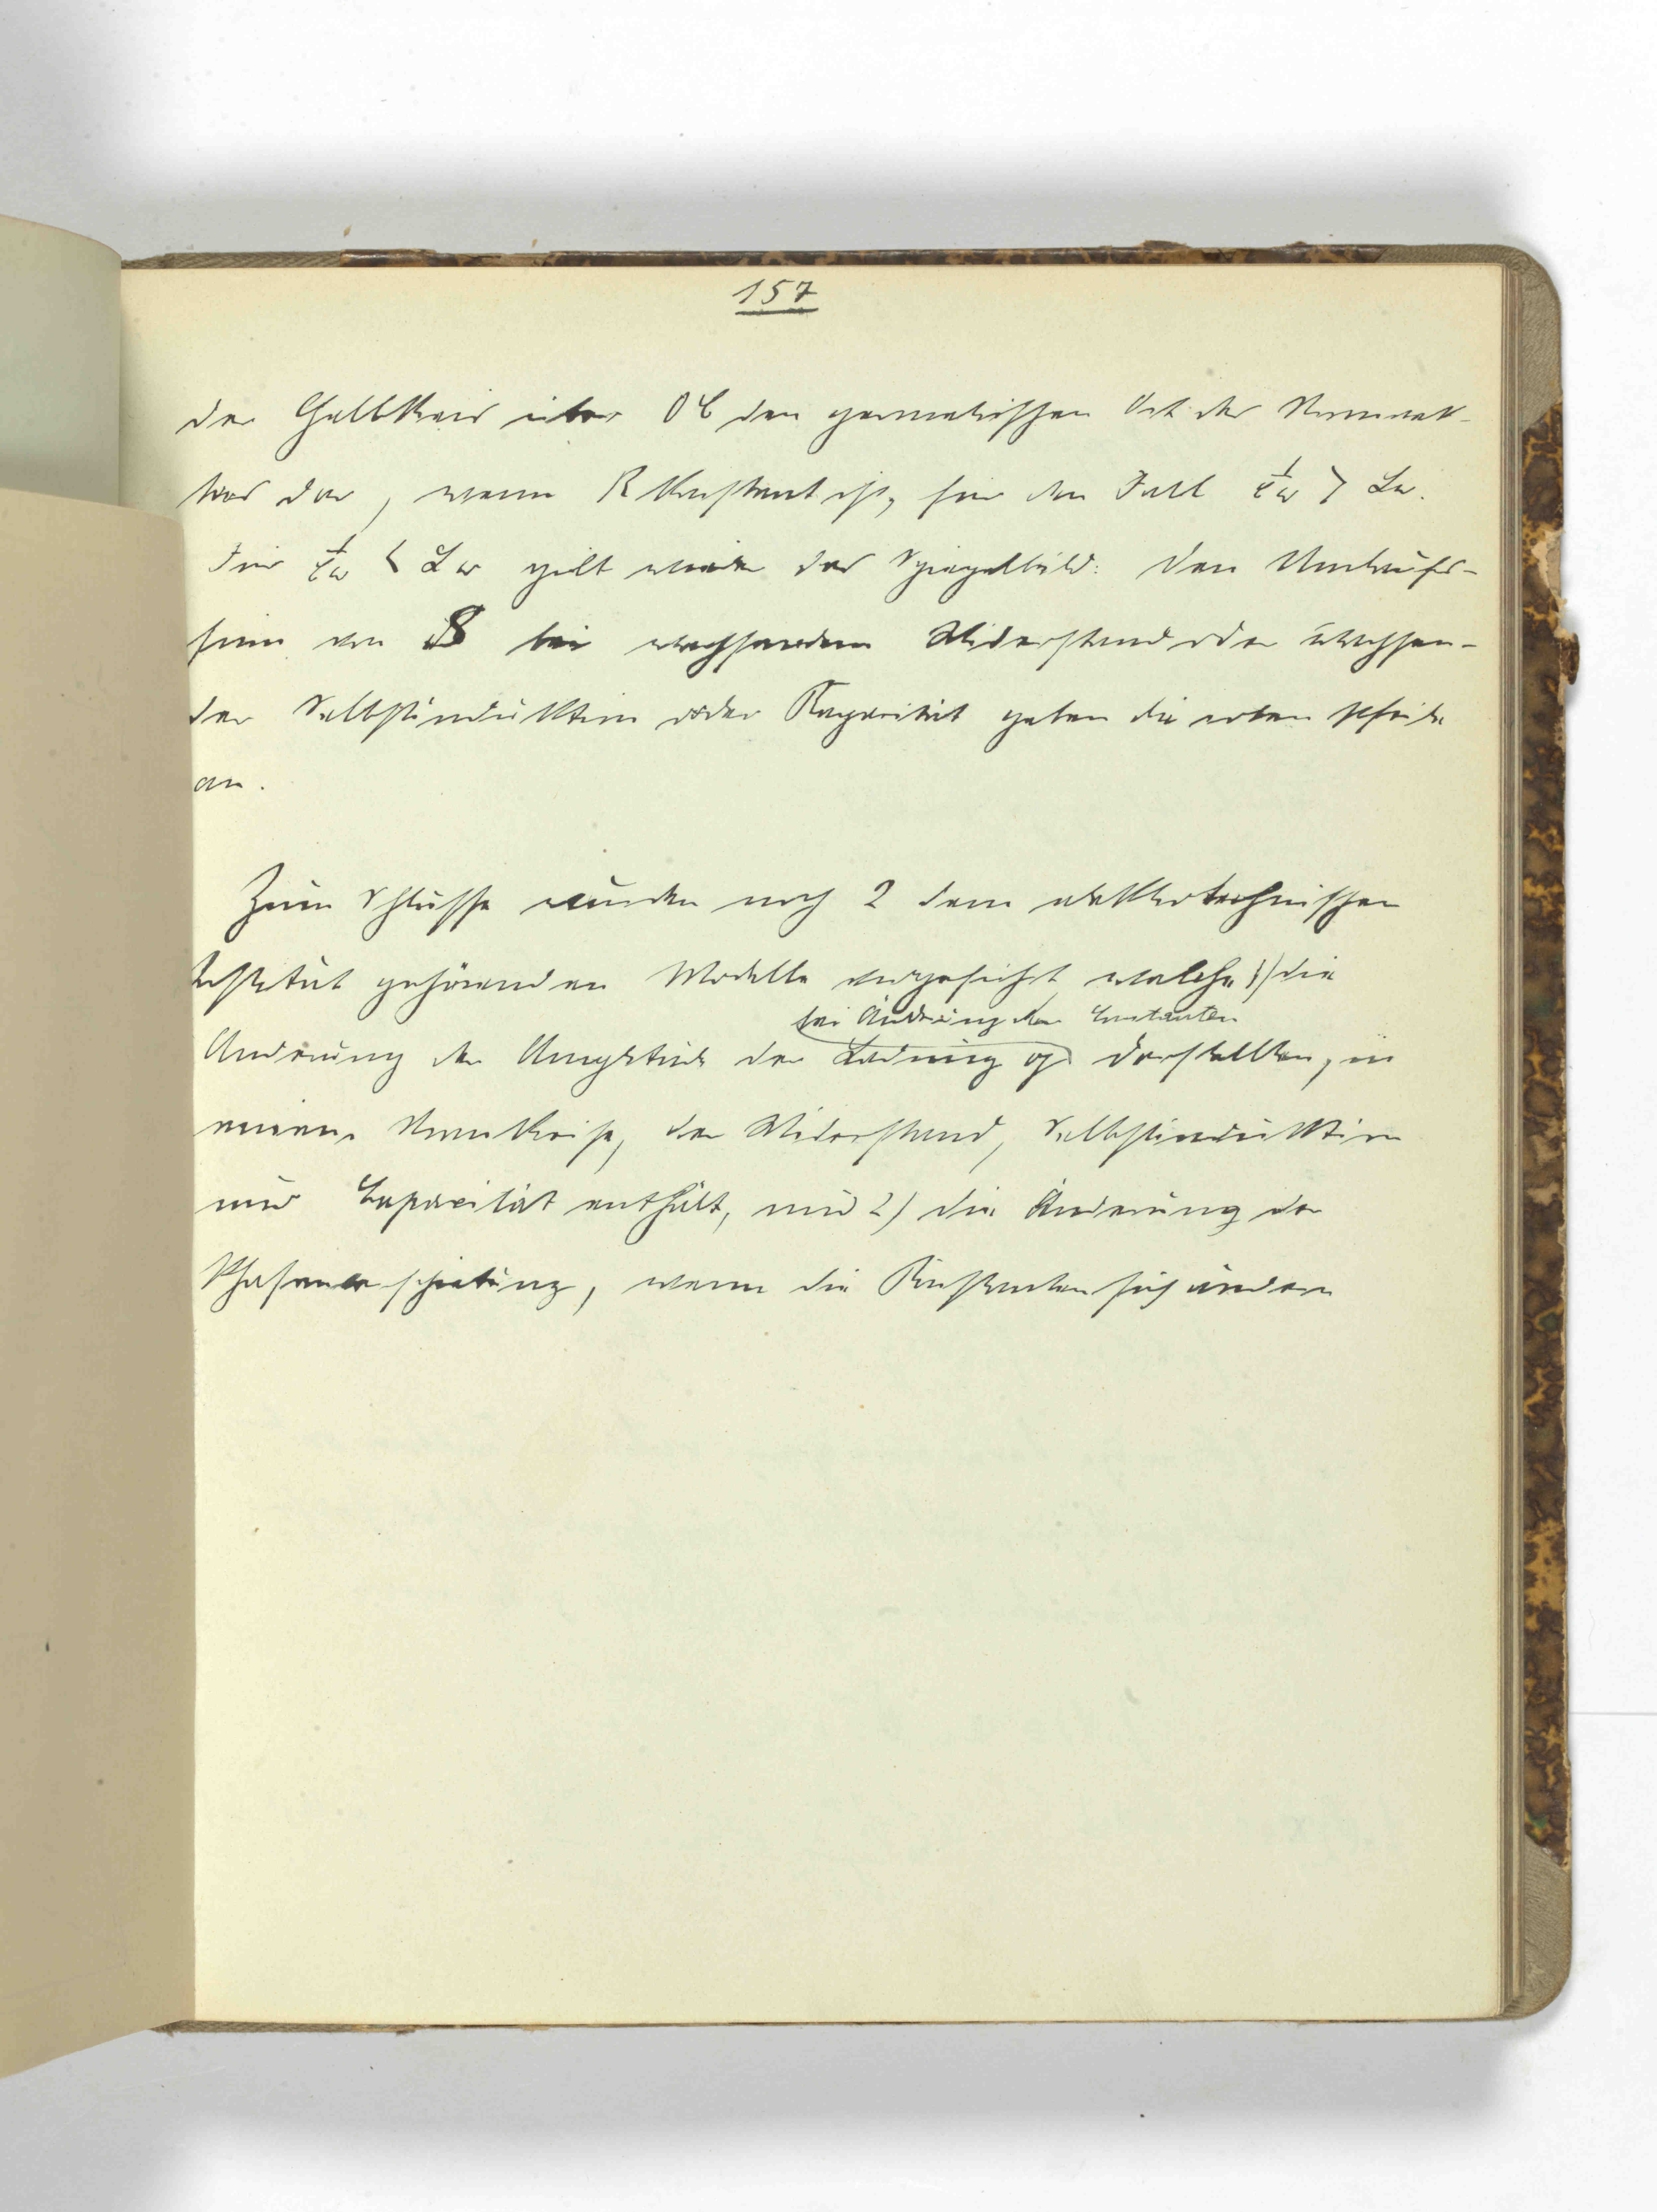 157
der Halbkreis über OC den geometrischen Ort des Stromvek-
tors dar, wenn R Konstant ist, für den Fall 1/Cw > Lw.
Für 1/Cw < Lw gilt wieder das Spiegelbild. Den Umlaufs-
sinn von S bei wachsendem Widerstand oder wachsen-
der Selbstinduktion oder Kapacität geben die roten Pfeile
an.
Zum Schlusse wurden noch 2 dem elektrotechnischen
Institut gehörenden Modelle vorgeführt, welche 1) die
bei Änderung der Constanten
Änderung der Amplitude der Ladung darstellten, in
einem Stromkreise, der Widerstand, Selbstinduktion
und Capacität enthält, und 2) die Änderung der
Phasenverschiebung, wenn die Konstanten sich ändern